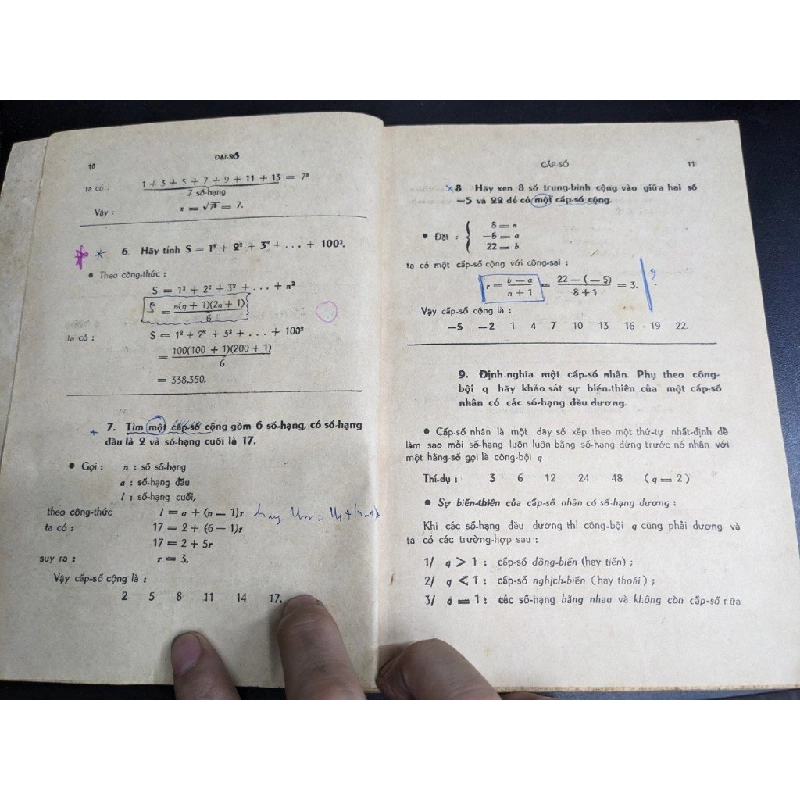 10 ĐẠI-SỐ
ta có : 1 + 3 + 5 + 7 + 9 + 11 + 13 = 7²
7 số-hạng
Vậy : x = √7² = 7.
6. Hãy tính S = 1² + 2² + 3² + . . . + 100².
• Theo công-thức :
S = 1² + 2² + 3² + . . . + n²
S = n(n + 1)(2n + 1)
6
ta có : S = 1² + 2² + 3² + . . . + 100²
= 100(100 + 1)(200 + 1)
6
= 338.350.
7. Tìm một cấp-số cộng gồm 6 số-hạng, có số-hạng
đầu là 2 và số-hạng cuối là 17.
• Gọi : n : số số-hạng
a : số-hạng đầu
l : số-hạng cuối,
theo công-thức l = a + (n — 1)r hay
ta có : 17 = 2 + (6 — 1)r
17 = 2 + 5r
suy ra : r = 3.
Vậy cấp-số cộng là :
2 5 8 11 14 17.
CẤP-SỐ 11
8 Hãy xen 8 số trung-bình cộng vào giữa hai số
—5 và 22 để có một cấp-số cộng.
• Đặt : 8 = n
—5 = a
22 = b
ta có một cấp-số cộng với công-sai :
r = b — a / n + 1 = 22 — (— 5) / 8 + 1 = 3.
Vậy cấp-số cộng là :
—5 —2 1 4 7 10 13 16 19 22.
9. Định-nghĩa một cấp-số nhân. Phụ theo công-
bội q hãy khảo-sát sự biến-thiên của một cấp-số
nhân có các số-hạng đều dương.
• Cấp-số nhân là một dãy số xếp theo một thứ-tự nhất-định để
làm sao mỗi số-hạng luôn luôn bằng số-hạng đứng trước nó nhân với
một hằng-số gọi là công-bội q
Thí-dụ : 3 6 12 24 48 (q = 2)
• Sự biến-thiên của cấp-số nhân có số-hạng dương :
Khi các số-hạng đều dương thì công-bội q cũng phải dương và
ta có các trường-hợp sau :
1/ q > 1 : cấp-số đồng-biến (hay tiến) ;
2/ q < 1 : cấp-số nghịch-biến (hay thoái) ;
3/ q = 1 : các số-hạng bằng nhau và không còn cấp-số nữa